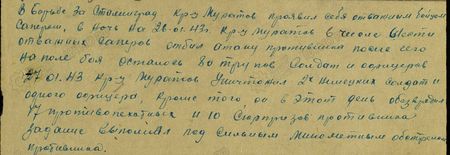 В борьбе за Сталинград кр-ц Муратов проявил себя отважным бойцом
сапером, в ночь на 26.01.43г. кр-ц Муратов в числе шести
отважных саперов отбил атаку противника после чего
на поле боя осталось 80 трупов солдат и офицеров
27.01.43 кр-ц Муратов уничтожил 2х немецких солдат и
одного офицера, кроме того он в этот день обезвредил
77 противопехотных и 10 сюрпризов противника
задание выполнял под сильным минометным обстрелом
противника.